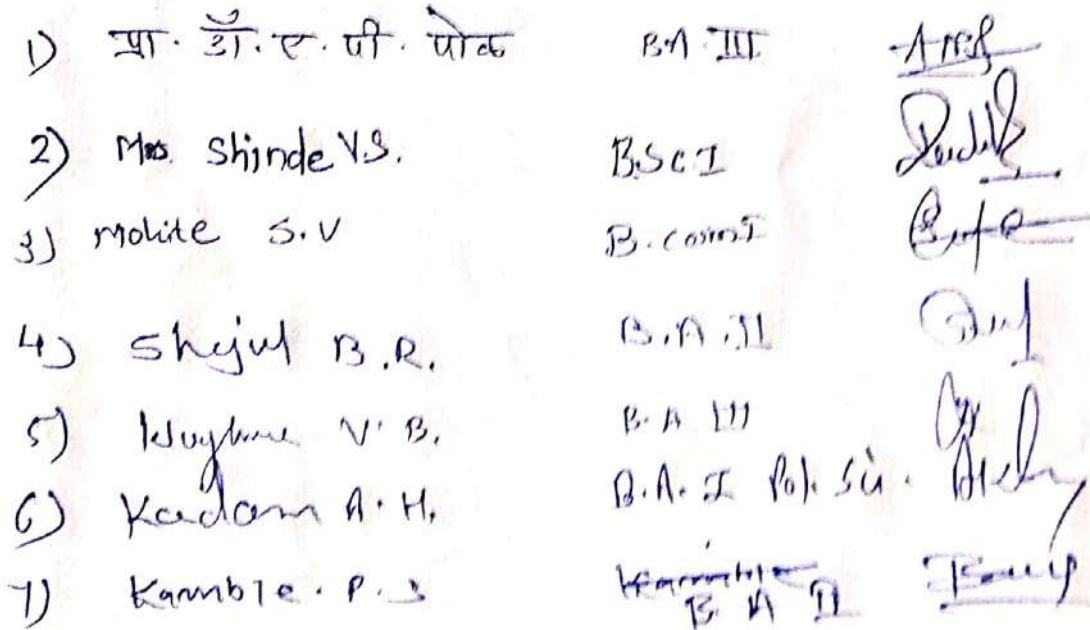 1) प्रा. डॉ. ए. पी. पोळ B.A III
2) Mrs. Shinde V.S. B.Sc.I
3) Mohite S.V B.comI
4) Shejul B.R. B.A.II
5) V.B. B.A III
6) Kadam A.H. B.A.I Pol. Sci.
7) Kamble. P.S Kamble
B A II